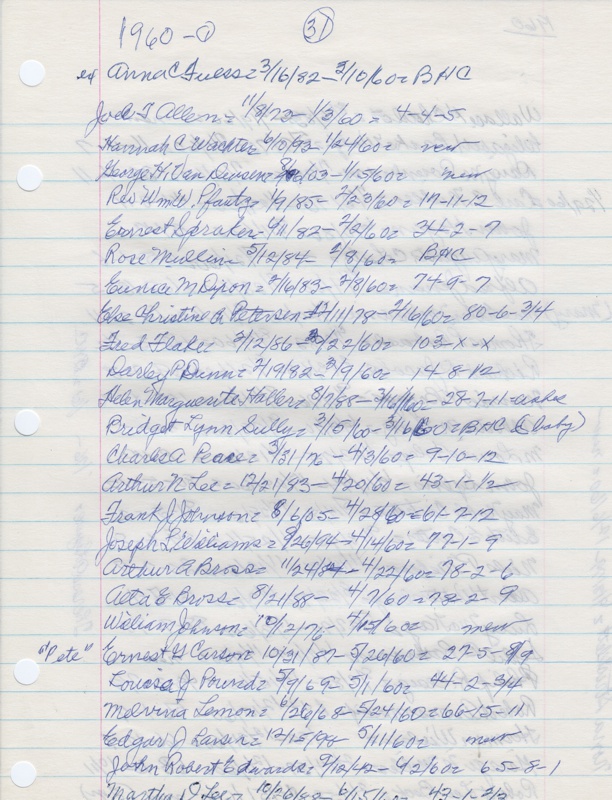 1960-① 37
ex Anna C Guess = 3/16/82 - 3/10/60 = BHC
Joe T Allen = 11/8/73 - 1/3/60 = 4-4-5
Hannah C Wachter = 6/10/93 - 1/24/60 = new
George H. Van Deusen = 03 - 1/15/60 = new
Rev Wm W. Pfautz = 1/9/85 - 2/23/60 = 17-11-12
Ernest Spraker = 4/11/82 - 2/2/60 = 34-2-7
Rose = 5/12/84 - 2/8/60 = BHC
Eunice M Dixon = 2/16/83 - 2/8/60 = 74-9-7
Else Christine A Petersen = /11/78 - 2/16/60 = 80-6-3/4
Fred Flake = 3/12/86 - /22/60 = 103-x-x
Darley P Dunn = 2/19/82 - 3/9/60 = 14-8-1/2
Helen Marguerite Haller = 8/7/88 - 3/16/60 - 28-7-11-ashes
Bridget Lynn Sully = 3/15/60 - 3/16/60 = BHC (baby)
Charles A Pease = 3/31/76 - 4/3/60 = 9-10-12
Arthur N Lee = 12/21/93 - 4/20/60 = 43-1-1/2
Frank J Johnson = 8/6/05 - 4/29/60 = 61-7-12
Joseph L Williams = 9/26/94 - 4/14/60 = 77-1-9
Arthur A Bross = 11/24/84 - 4/22/60 = 78-2-6
Alta E Bross = 8/21/88 - 4/7/60 = 78-2-9
William Johnson = 10/12/76 - 4/15/60 = new
"Pete" Ernest G Carson = 10/31/87 - 5/26/60 = 27-5-8/9
Louisa J Pound = 5/9/69 - 5/1/60 = 44-2-3/4
Melvina Lemon = 6/26/68 - 5/24/60 = 66-15-11
Edgar J Larsen = 12/15/98 - 5/11/60 = new
John Robert Edwards = 9/12/42 - 4/2/60 = 65-8-1
Martha J Lee = 10/26/82 - 6/15/60 = 43-1-2/3